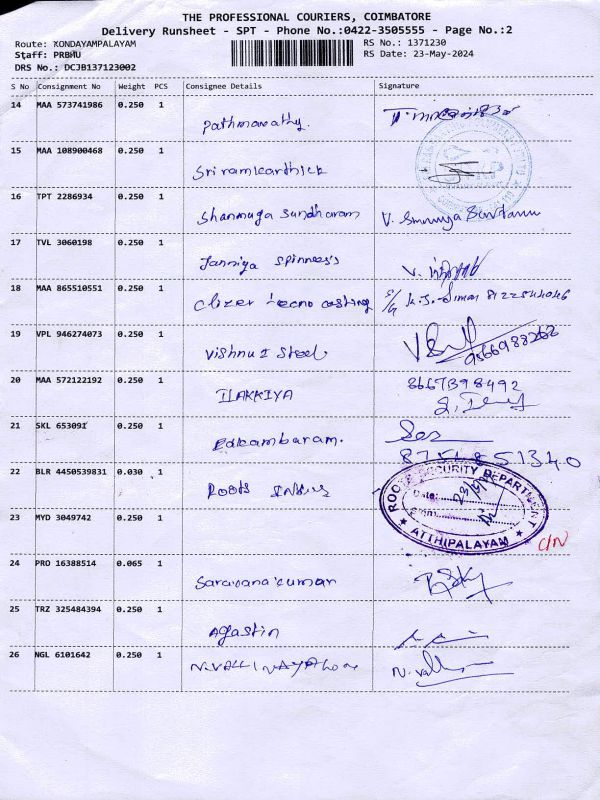 THE PROFESSIONAL COURIERS, COIMBATORE
Delivery Runsheet - SPT - Phone No.:0422-3505555 - Page No.:2
Route: KONDAYAMPALAYAM RS No.: 1371230
Staff: PRBHU RS Date: 23-May-2024
DRS No.: DCJB137123002
S No Consignment No Weight PCS Consignee Details Signature
14 MAA 573741986 0.250 1
Pathmavathy.
15 MAA 108900468 0.250 1
Sriramkarthick
16 TPT 2286934 0.250 1
Shanmuga Sundharam V.
17 TVL 3060198 0.250 1
Janniya Spinners V.
18 MAA 865510551 0.250 1
Clizer Tecno Casting
19 VPL 946274073 0.250 1
Vishnu I Steel 9566988262
20 MAA 572122192 0.250 1 8667398492
ILAKKIYA
21 SKL 653091 0.250 1
22 BLR 4450539831 0.030 1
Roots
ROOTS SECURITY DEPARTMENT
Date:
ATTHIPALAYAM
23 MYD 3049742 0.250 1
C/N
24 PRO 16388514 0.065 1
Saravanakumar
25 TRZ 325484394 0.250 1
Agastin
26 NGL 6101642 0.250 1
N.